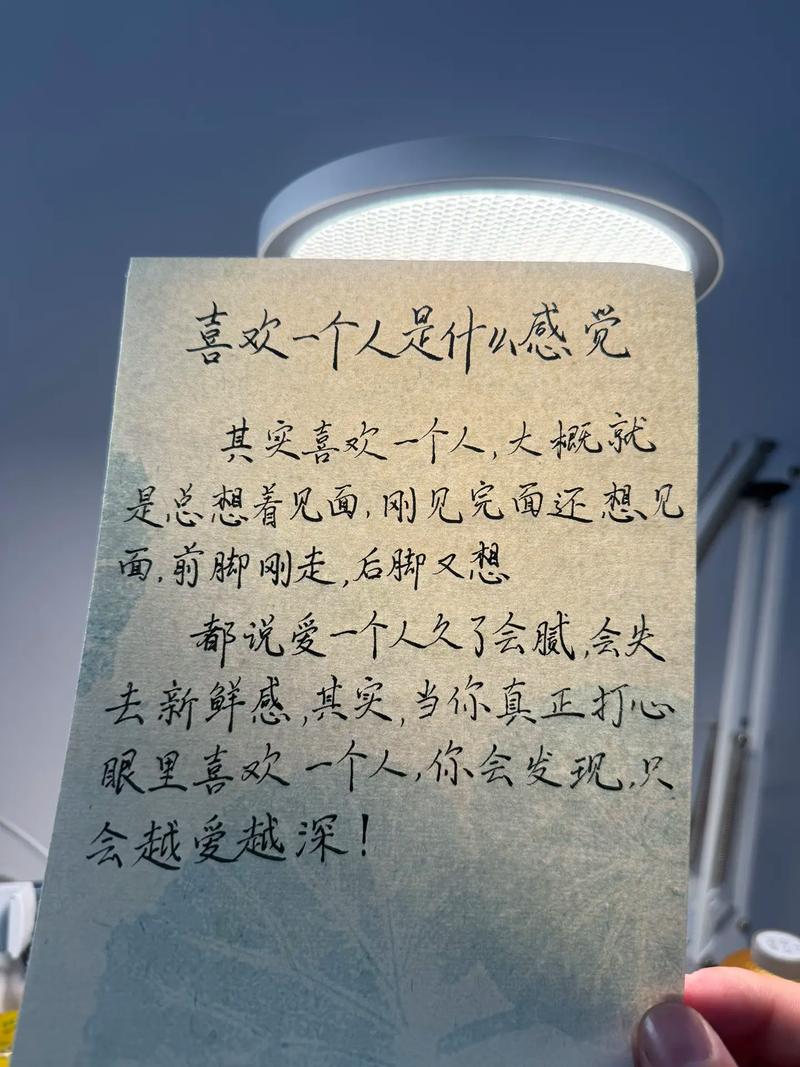 喜欢一个人是什么感觉
其实喜欢一个人,大概就
是总想着见面,刚见完面还想见
面,前脚刚走,后脚又想
都说爱一个人久了会腻,会失
去新鲜感,其实,当你真正打心
眼里喜欢一个人,你会发现,只
会越爱越深!